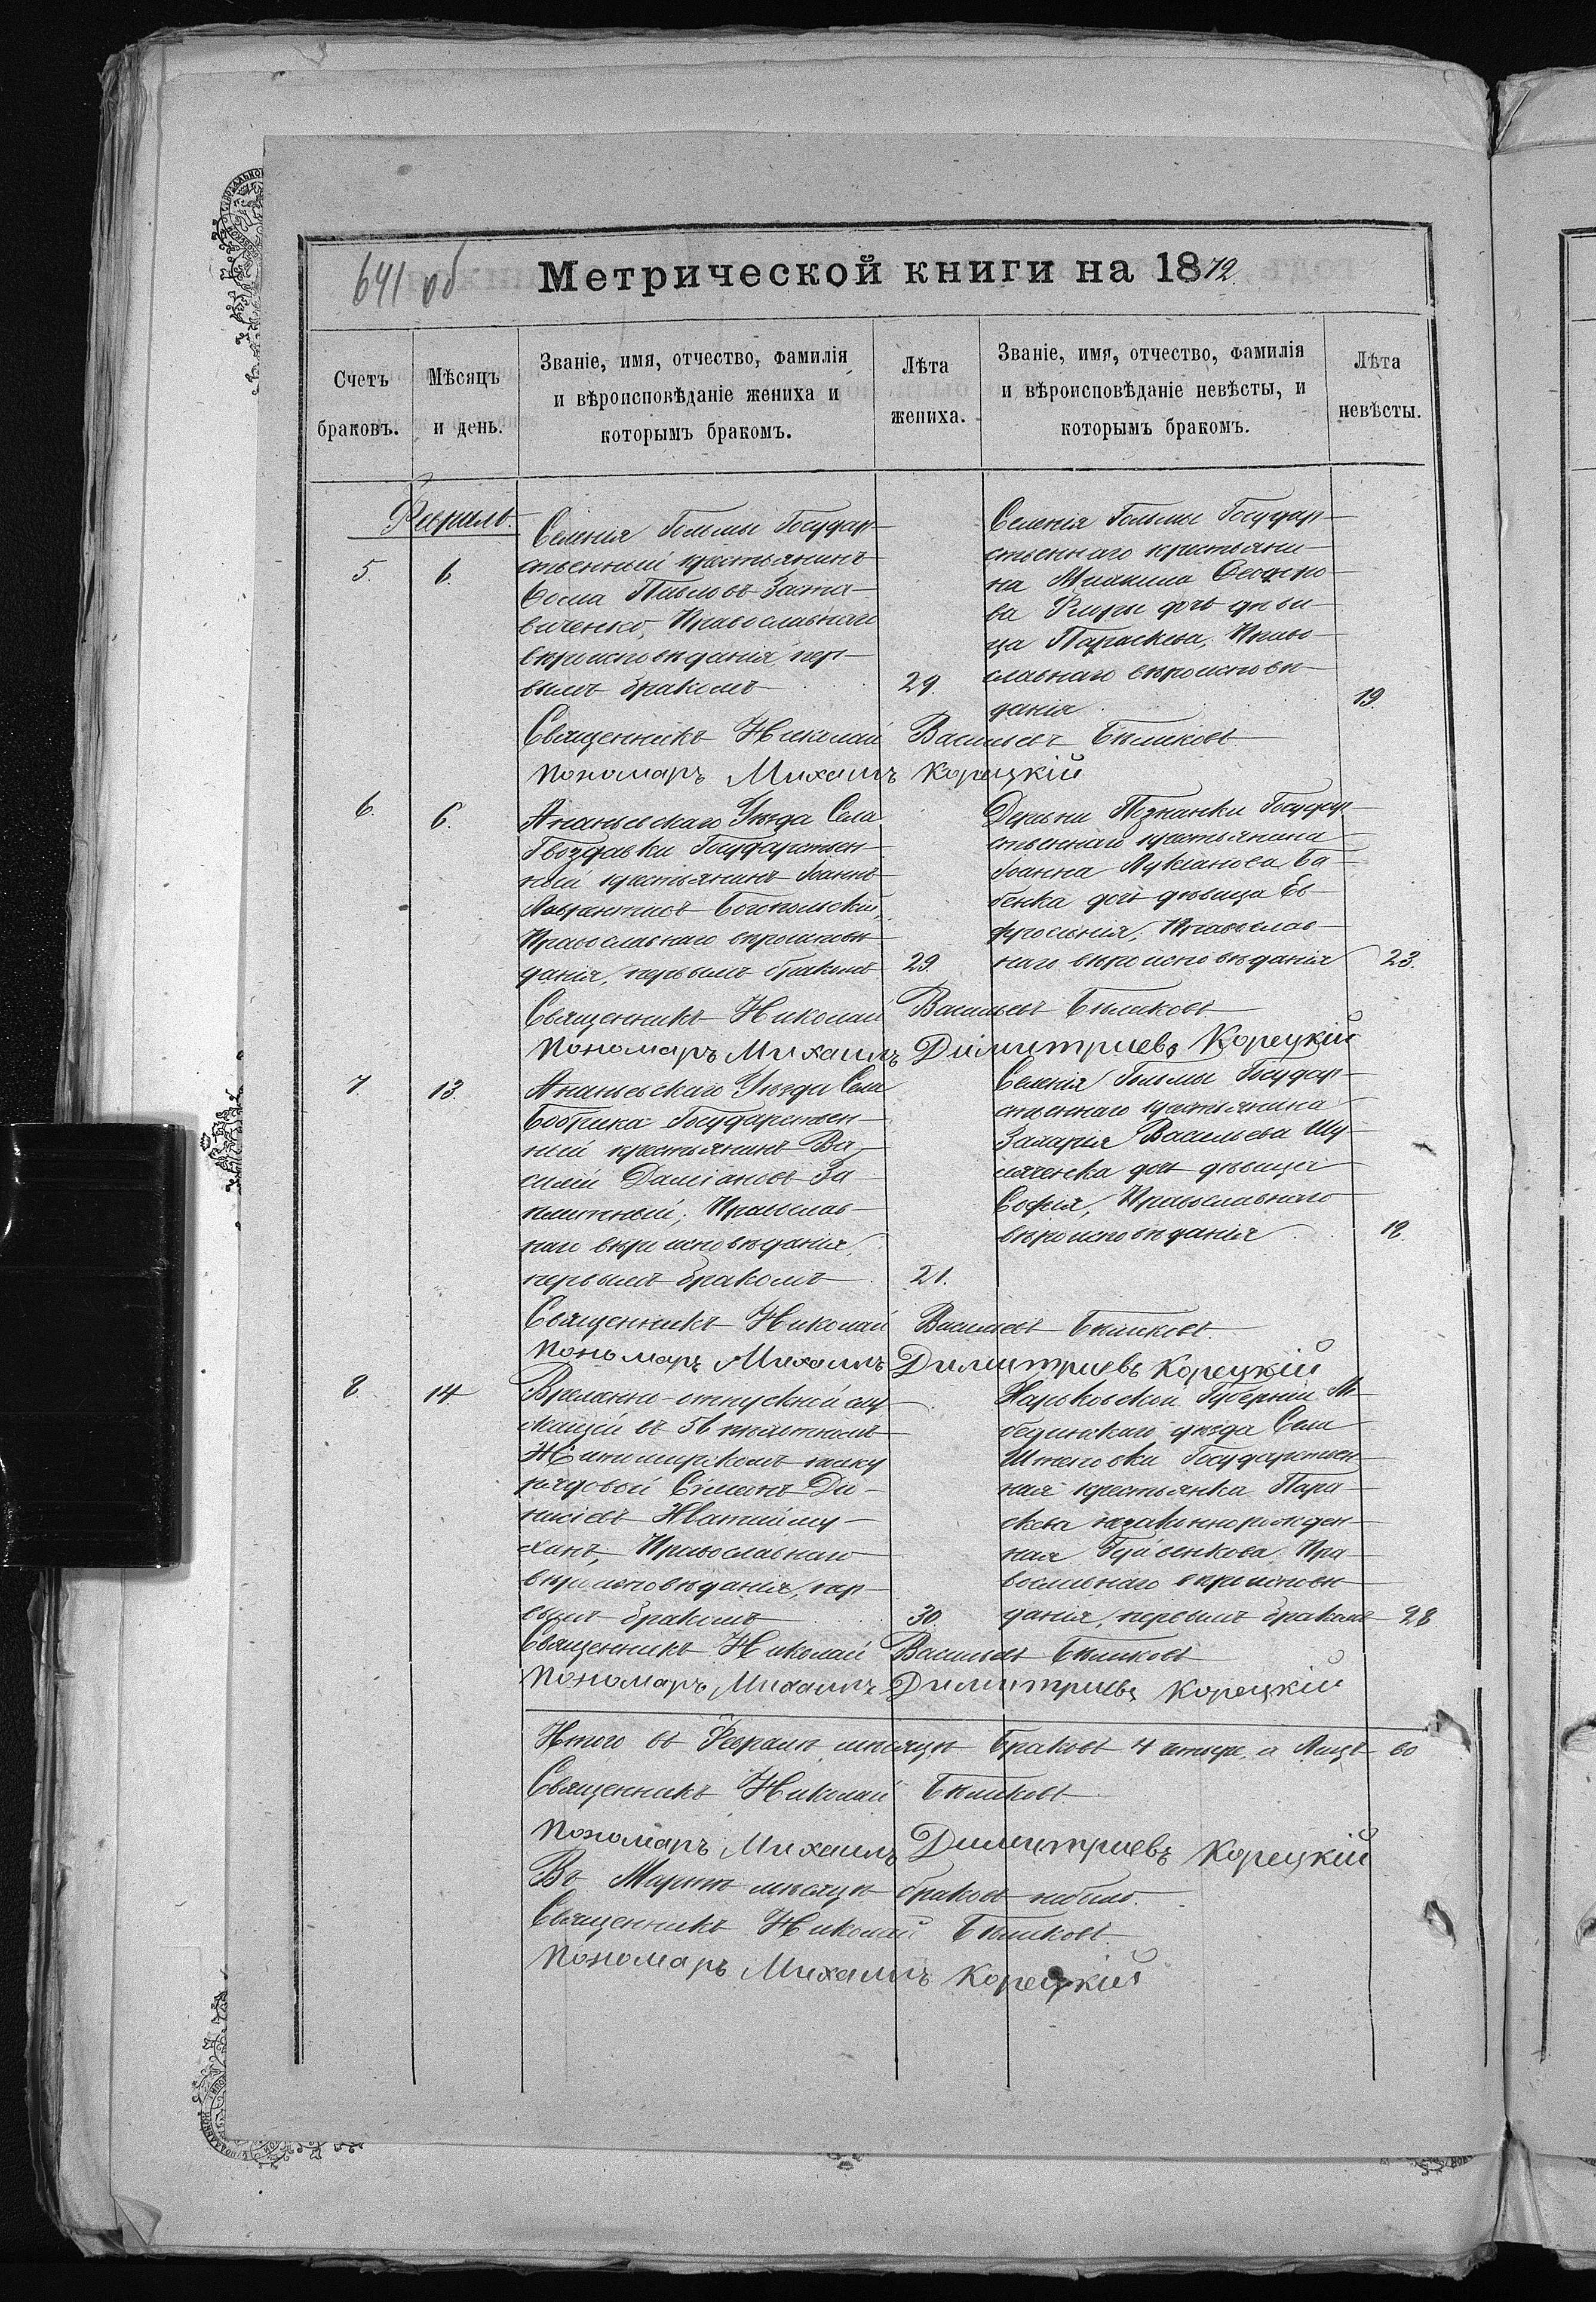 641 об
Метрической книги на 1872.
Счетъ браковъ.
Мѣсяцъ и день.
Званіе, имя, отчество, фамилія и вѣроисповѣданіе жениха и которымъ бракомъ.
Лѣта жениха.
Званіе, имя, отчество, фамилія и вѣроисповѣданіе невѣсты, и которымъ бракомъ.
Лѣта невѣсты.
Февраль.
5.
6.
Селенія Гольмы Государ-
ственный крестьянинъ
Павловъ
Православнаго
вѣроисповѣданія, пер-
вымъ бракомъ
29.
Селенія Гольмы Государ-
ственнаго крестьяни-
на
дочь дѣви-
ца Параскева, Право-
славнаго вѣроисповѣ-
данія
19.
Священникъ Николай Васильевъ Бѣликовъ
Пономарь Михаилъ Корецкій
6.
6.
Ананьевскаго Уѣзда Села
Гвоздавки Государствен-
ный крестьянинъ Іоаннъ
Лаврентіевъ Богопольскій,
Православнаго вѣроисповѣ-
данія, первымъ бракомъ
29.
Деревни Познанки Государ-
ственнаго крестьянина
Іоанна Лукіанова Ба-
бенка дочь дѣвица Ев-
фросинія, Православ-
наго вѣроисповѣданія
23.
Священникъ Николай Васильевъ Бѣликовъ
Пономарь Михаилъ Димитріевъ Корецкій
7.
13.
Ананьевскаго Уѣзда Села
Бобрика Государствен-
ный крестьянинъ Ва-
силій Даміановъ За-
Православ-
наго вѣроисповѣданія,
первымъ бракомъ
21.
Селенія Гольмы Государ-
ственнаго крестьянина
Захарія Васильева Шу-
ляченка дочь дѣвица
Софія, Православнаго
вѣроисповѣданія
18.
Священникъ Николай Васильевъ Бѣликовъ.
Пономарь Михаилъ Димитріевъ Корецкій
8
14
Временно-отпускной слу-
жащій въ 56 пѣхотномъ
Житомирскомъ полку
рядовой Симеонъ Ди-
Православнаго
вѣроисповѣданія, пер-
вымъ бракомъ
30.
Харьковской Губерніи Ле-
бединскаго уѣзда Села
Штеповки Государствен-
ная крестьянка Пара-
скева незаконнорожден-
ная Пра-
вославнаго вѣроисповѣ-
данія, первымъ бракомъ
28
Священникъ Николай Васильевъ Бѣликовъ
Пономарь Михаилъ Димитріевъ Корецкій
Итого въ Февралѣ мѣсяцѣ браковъ 4 четыре, а лицъ 8о
Священникъ Николай Бѣликовъ.
Пономарь Михаилъ Димитріевъ Корецкій
Въ Мартѣ мѣсяцѣ браковъ небыло.
Священникъ Николай Бѣликовъ.
Пономарь Михаилъ Корецкій